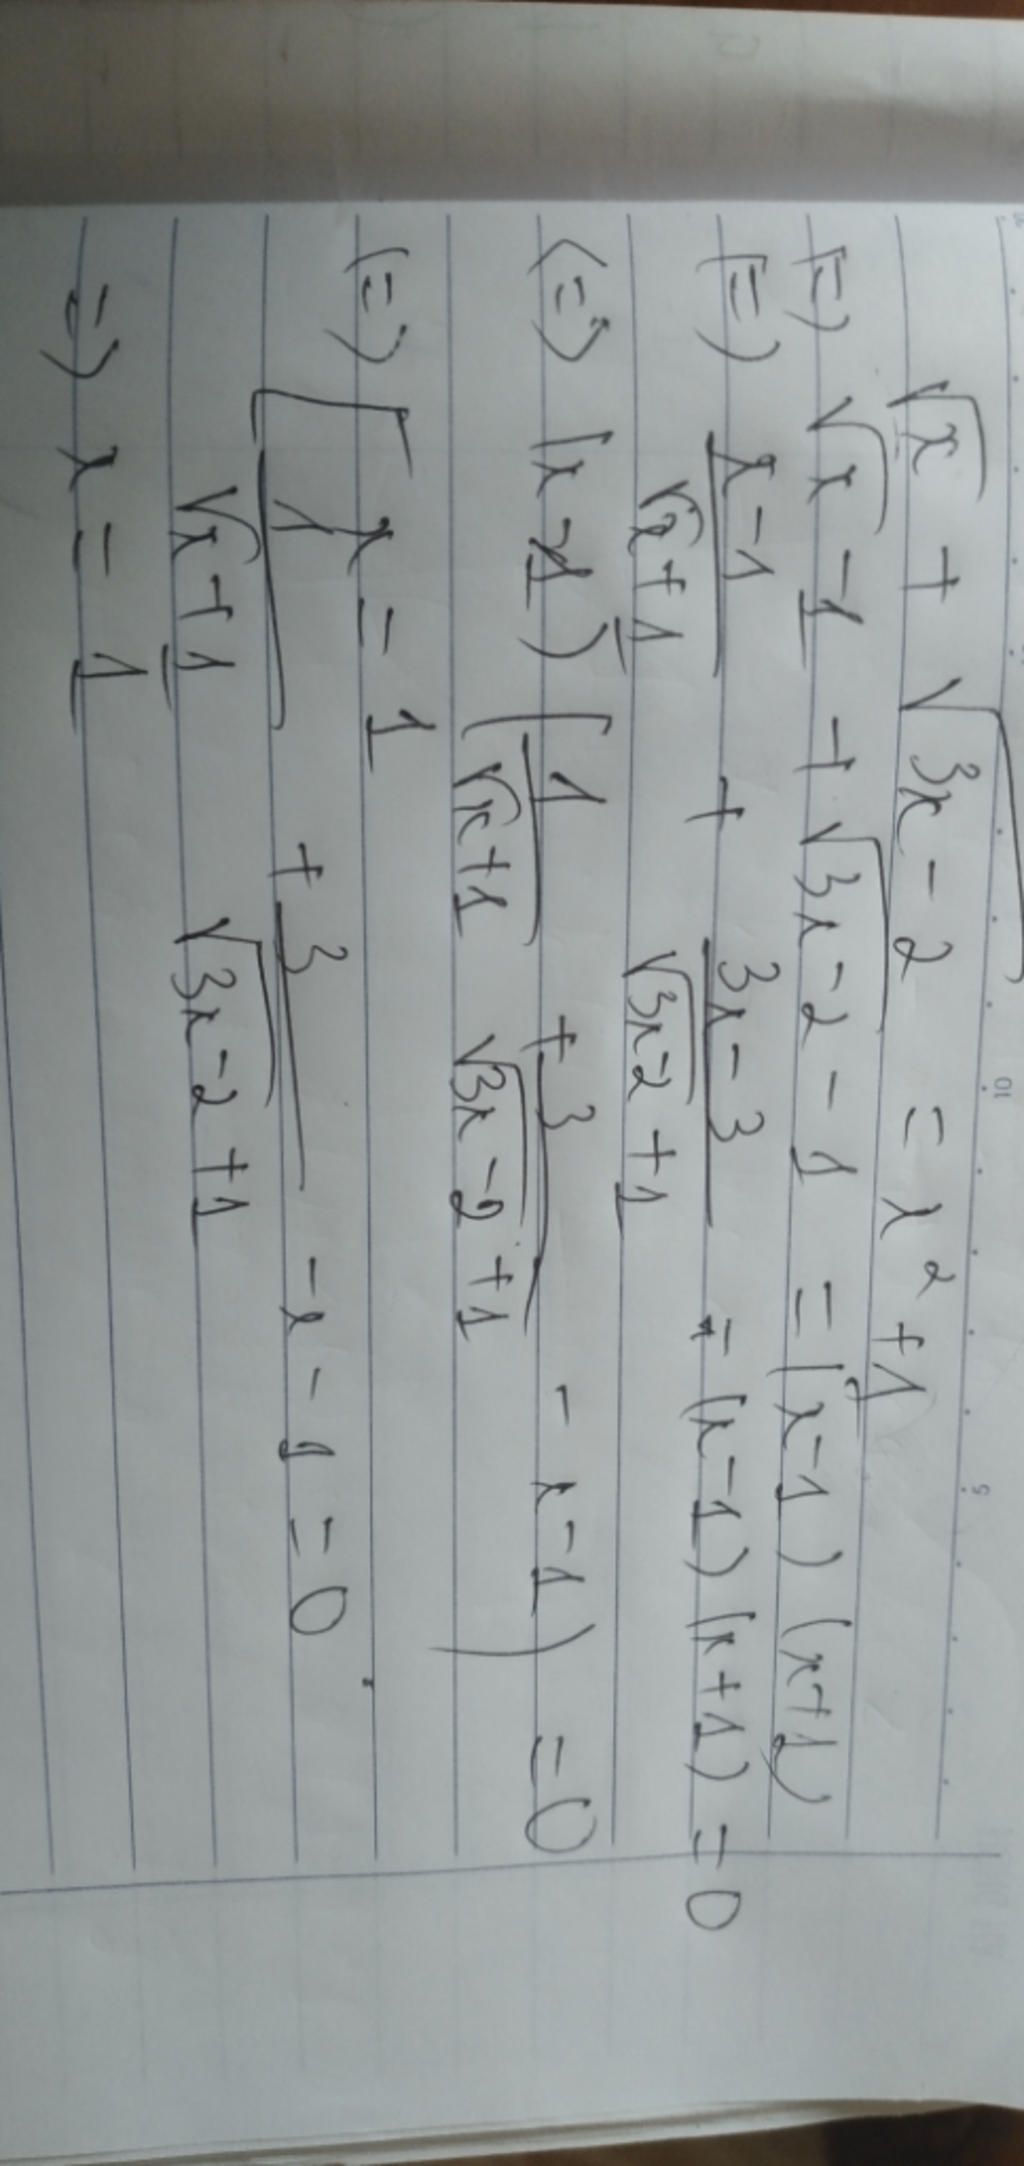 √x + √3x-2 = x² + 1
(=) √x - 1 + √3x-2 - 1 = (x-1) (x+1)
(=) x-1/√x+1 + 3x-3/√3x-2+1 - (x-1)(x+1) = 0
<=> (x-1) (1/√x+1 + 3/√3x-2+1 - x-1) = 0
(=) [ x = 1
1/√x+1 + 3/√3x-2+1 - x - 1 = 0
=) x = 1
10
5